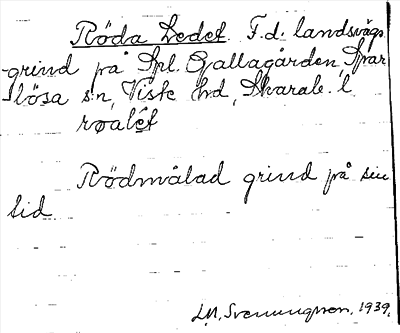 Röda Ledet F.d. landsvägs
-grind på Spl. Gallagården, Spar
lösa sn, Viste hd, Skarab. l
roalét
Rödmålad grind på sin
tid
L.M. Svenungsson. 1939.